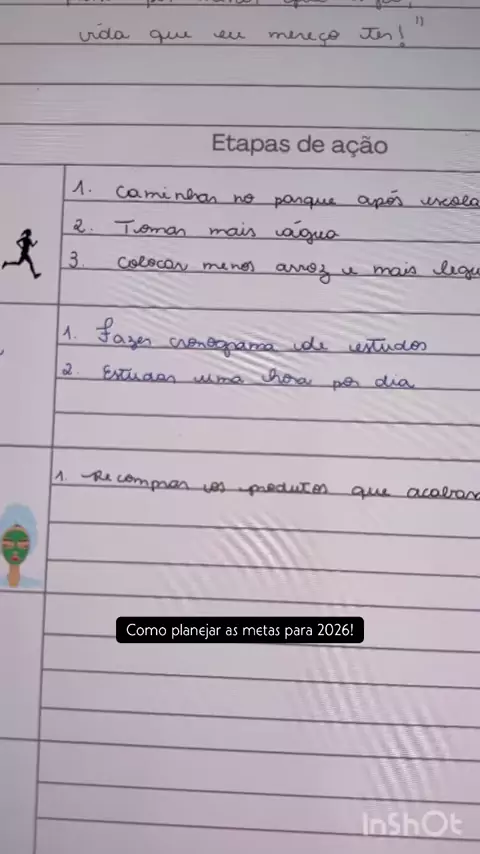 vida que eu mereço ter!"
Etapas de ação
1. Caminhar no parque após escola
2. Tomar mais água
3. Colocar menos arroz e mais legu
1. Fazer cronograma de estudos
2. Estudar uma hora por dia
1. Recomprar os produtos que acabara
Como planejar as metas para 2026!
InShOt